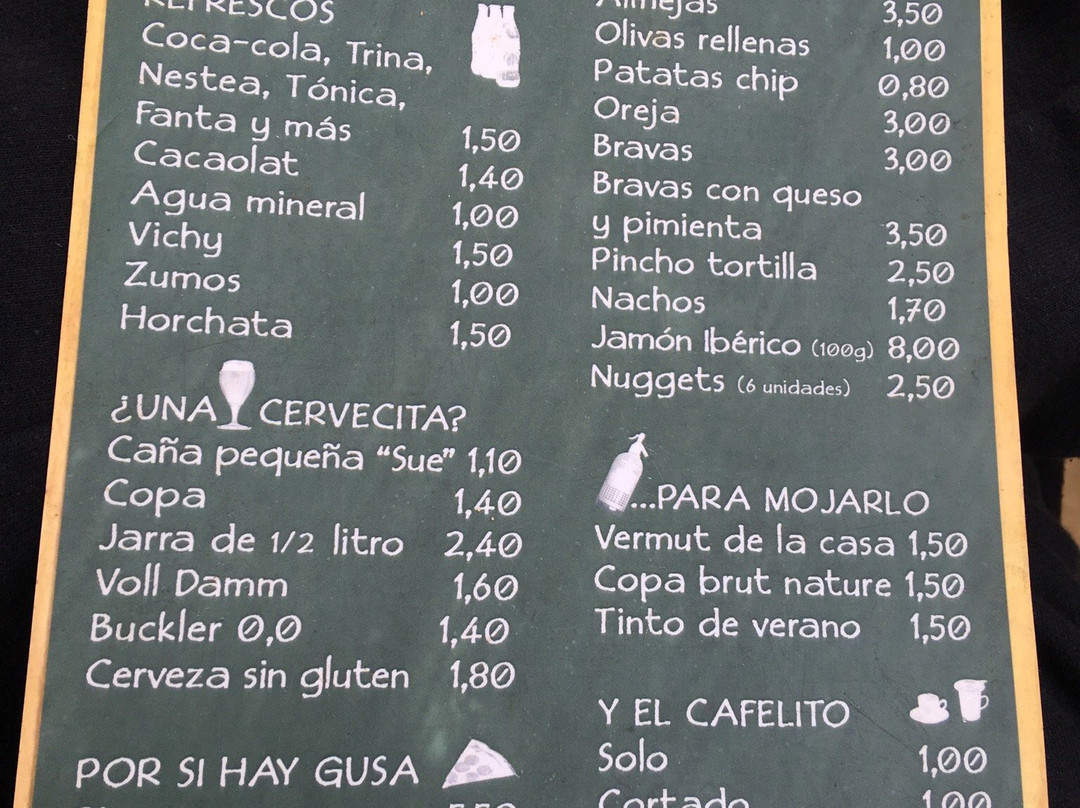 REFRESCOS
Coca-cola, Trina,
Nestea, Tónica,
Fanta y más 1,50
Cacaolat 1,40
Agua mineral 1,00
Vichy 1,50
Zumos 1,00
Horchata 1,50
¿UNA CERVECITA?
Caña pequeña “Sue” 1,10
Copa 1,40
Jarra de 1/2 litro 2,40
Voll Damm 1,60
Buckler 0,0 1,40
Cerveza sin gluten 1,80
POR SI HAY GUSA
Almejas 3,50
Olivas rellenas 1,00
Patatas chip 0,80
Oreja 3,00
Bravas 3,00
Bravas con queso
y pimienta 3,50
Pincho tortilla 2,50
Nachos 1,70
Jamón Ibérico (100g) 8,00
Nuggets (6 unidades) 2,50
...PARA MOJARLO
Vermut de la casa 1,50
Copa brut nature 1,50
Tinto de verano 1,50
Y EL CAFELITO
Solo 1,00
Cortado 1,00